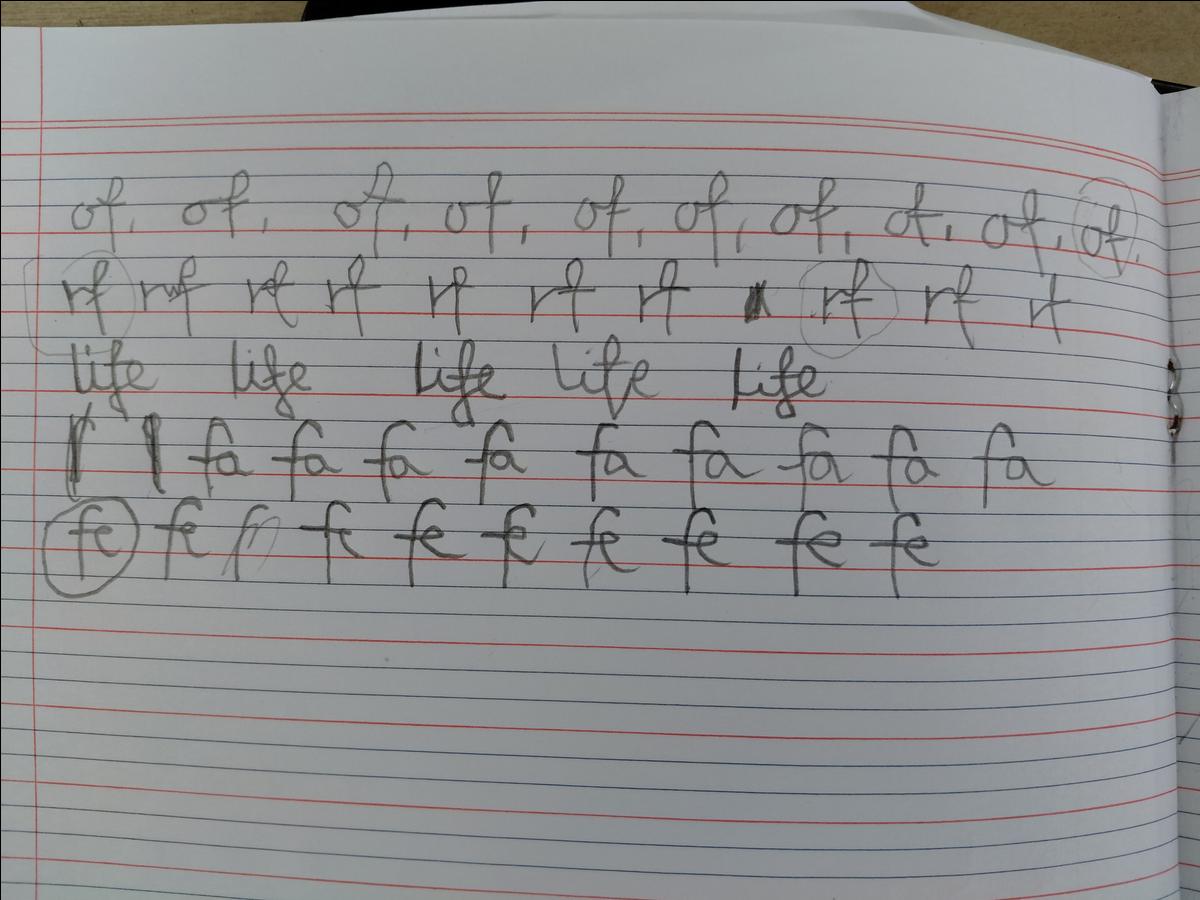 of, of, of, of, of, of, of, of, of, of,
rf rf rf rf rf rf rf rf rf rf
life life life life life
fa fa fa fa fa fa fa fa fa
fe fe fe fe fe fe fe fe fe